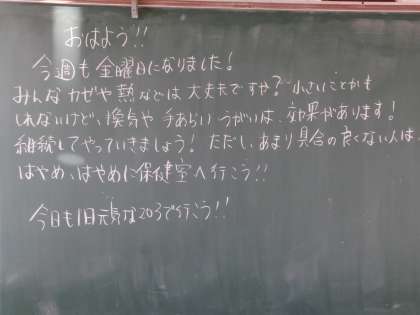 おはよう!!
今週も金曜日になりました!
みんなカゼや熱などは大丈夫ですか?小さいことかも
しれないけど、換気や手あらいうがいは、効果があります!
継続してやっていきましょう!ただし、あまり具合の良くない人は、
はやめ、はやめに保健室へ行こう!!
今日も1日元気な203で行こう!!